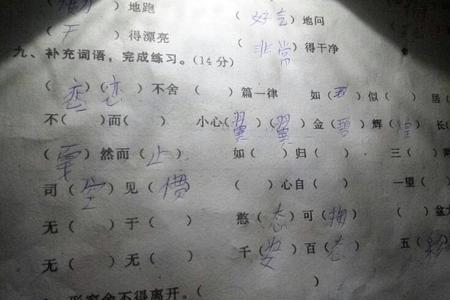 （ ）地跑 （好奇）地问
（ ）得漂亮 （非常）得干净
九、补充词语，完成练习。（14分）
（恋）（恋）不舍 （ ）篇一律 如（ ）似（ ） 居（
不（ ）而（ ） 小心（翼）（翼） 金（ ）辉（煌） 长（
（ ）然而（止） 如（ ）归（ ） 三（
司（空）见（惯） （ ）心自（ ） 一望（
无（ ）于（ ） 憨（态）可（掬） （ ）盆大
无（ ）无（ ） 千（ ）百（态） 五（
形容舍不得离开。（ ）